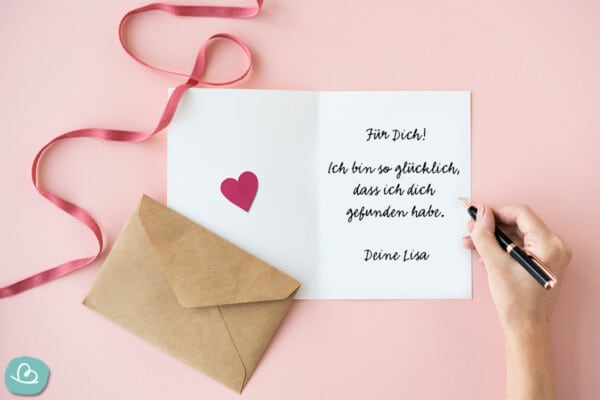 Für Dich!
Ich bin so glücklich,
dass ich dich
gefunden habe.
Deine Lisa